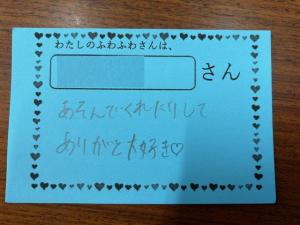 わたしのふわふわさんは、
さん
あそんでくれたりして
ありがと大好き♡